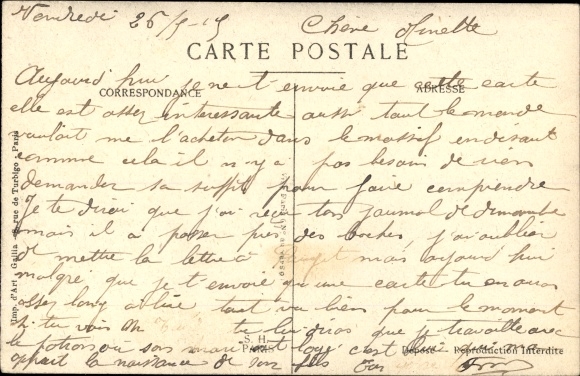 Vendredi 26/3-15 Chère Ninette
CARTE POSTALE
CORRESPONDANCE ADRESSE
Aujourd'hui je ne t envoie que cette carte
elle est assez interessante aussi tout le monde
voulait me l'acheter dans le massif en disant
comme cela il n y a pas besoin de rien
demander sa suffit pour faire comprendre
Je te dirai que j'ai reçu ton journal de dimanche
mais il a passer des boches j'ai oublier
de mettre la lettre a mais aujourd hui
malgré que je t envoie qu une carte tu en auras
assez long a lire tout va bien pour le moment
si tu vois tu lui diras que je travaille avec
le ou son c'est lui qui m'a
la naissance de son fils
Imp. d'Art. Gallia - 8, rue de Turbigo - Paris
S. H.
PARIS
Déposé - Reproduction Interdite